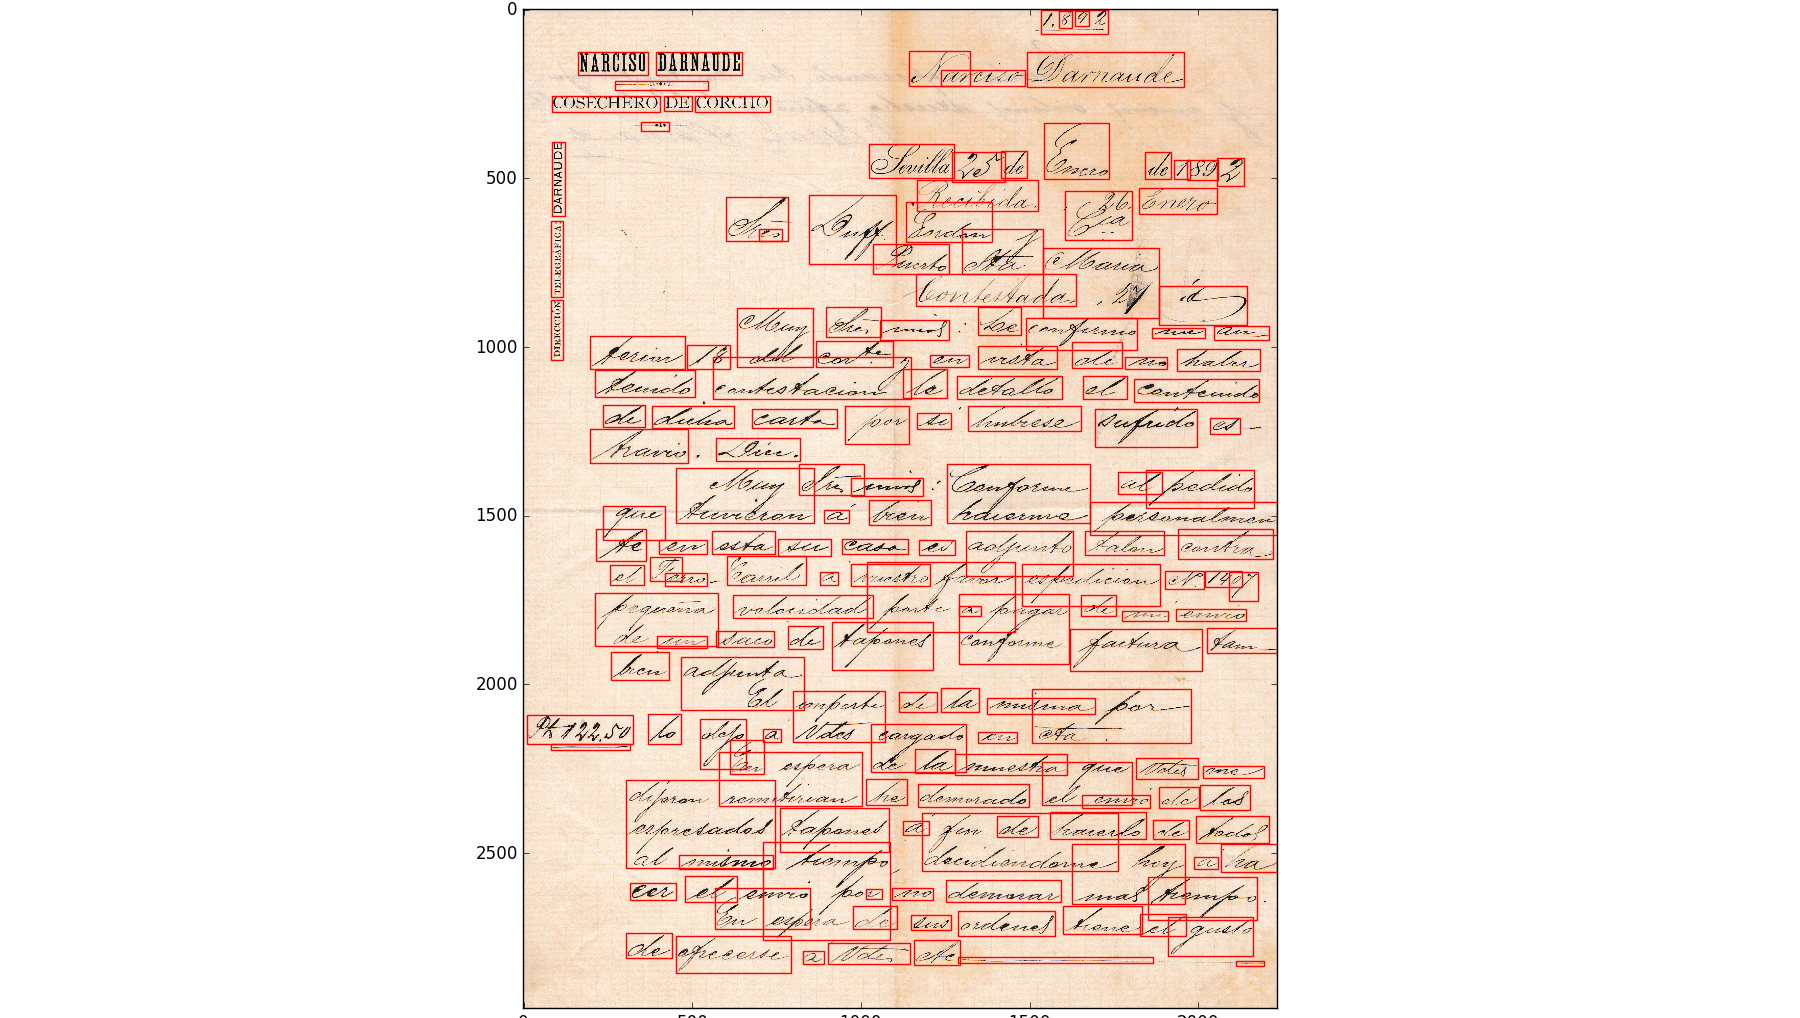 1.892
NARCISO DARNAUDE
Narciso Darnaude
COSECHERO DE CORCHO
DIRECCIÓN TELEGRAFICA: DARNAUDE
Sevilla 25 de Enero de 1892
Recibida. 26. Enero
Sres Duff Gordon Cia
Puerto Sta Maria
Contestada. 27 id
Muy Sres mios: Le confirmo mi an-
terior 18 del corte. y en vista de no haber
tenido contestacion le detallo el contenido
de dicha carta por si hubiese sufrido es-
travio. Dice.
Muy Sres mios: Conforme al pedido
que tuvieron á bien hacerme personalmen
te en esta su casa es adjunto talon contra
el Ferro-Carril a vuestro favor espedicion Nº 1407
pequeña velocidad porte a pagar de mi envio
de un saco de tapones conforme factura tam-
bien adjunta
El importe de la misma por-
Pts 122.50 lo dejo a Vdes cargado en cta.
En espera de la muestra que Vdes me
dijeron remitirian he demorado el envio de los
espresados tapones á fin de hacerlo de todos
al mismo tiempo, decidiendome hoy a ha
cer el envio por no demorar mas tiempo.
En espera de sus ordenes tiene el gusto
de ofrecerse a Vdes
0
500
1000
1500
2000
2500
0 500 1000 1500 2000